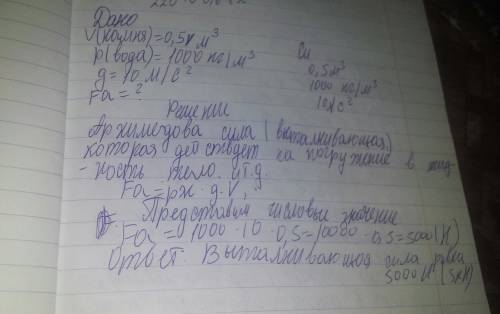 Дано
V(камня)=0,5 м³
p(вода)=1000 кг/м³
g=10 м/с²
Fa=?
Си
0,5 м³
1000 кг/м³
Решение
Архимедова сила (выталкивающая)
которая действует на погружение в жид-
-кость тело. и т.д.
Fa=pж·g·V,
Представим числовые значение
Fa=1000·10·0,5=10000·0,5=5000(Н)
Ответ. Выталкивающая сила равна
5000 Н (5кН)